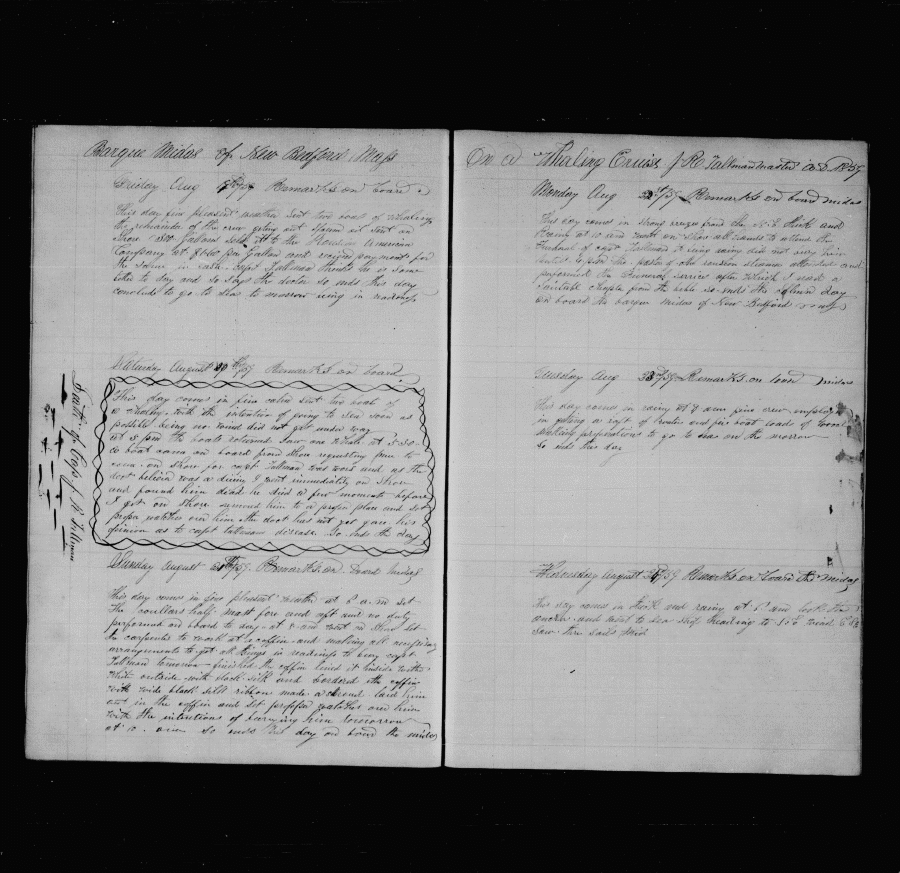 Barque Midas of New Bedford Mass
Friday Aug /59 Remarks on board
This day fine pleasant weather sent two boats of whaling
the remainder of the crew geting out Spirm oil Sent on
Shore 800 Gallons sold it to the Russian American
Company at $1.60 per Gallon and recived payment for
the same in Cash Capt Tallman thinks he is some
better to day and so says the doctor so ends this day
conclude to go to sea to morrow being in readiness
Saturday August 20th/59 Remarks on board
This day comes in fine calm sent two boats of
a whaling with the intention of going to sea soon as
posible being no wind did not get under way
at 5 pm the boats returned Saw one whale at 5-30
a boat came on board from Shore requesting me to
come on Shore for Capt Tallman was worse and as the
doct believed was a dieing I went immediatly on Shore
and found him dead he died a few moments before
I got on Shore removed him to a proper place and set
proper watches over him the doct has not yet gave his
opinion as to capt tallmans disease So ends this day
Death of Capt J R Tallman
Sunday August 21st/59 Remarks on board Midas
This day comes in fine pleasant weather at 8 a.m. set
the coullars half mast fore and aft and no duty
performed on board to day at 8 am went on Shore set
the carpenter to work at a coffin and making all nessesary
arrangements to get all things in readiness to bury capt
Tallman tomorrow finished the coffin lined it inside with
white outside with black silk and bordered the coffin
with wide black silk ribbon made a shroud laid him
out in the coffin and set propper watches over him
with the intentions of burying him tomorrow
at so ends this day on board the midas
On a Whaling Cruise J R Tallman master A.D. 1859
Monday Aug /59 Remarks on board midas
This day comes in strong breeze from the N.E. thick and
Raining at 10 am went on Shore all hands to attend the
Funeral of capt Tallman it being rainy did not
the pastor of the attended and
performed the Funeral service after which I read a
suitable chapter from the bible so ends this day
on board the barque midas of New Bedford
Tuesday Aug 23/59 Remarks on board midas
This day comes in rainy at 8 am crew employed
in geting a raft of water and boat loads of wood
making preperations to go to sea on the morrow
So ends this day
Wednesday August 24/59 Remarks on board the midas
This day comes in thick and raining at am took the
anchor and went to sea ship heading to wind
Saw two sails